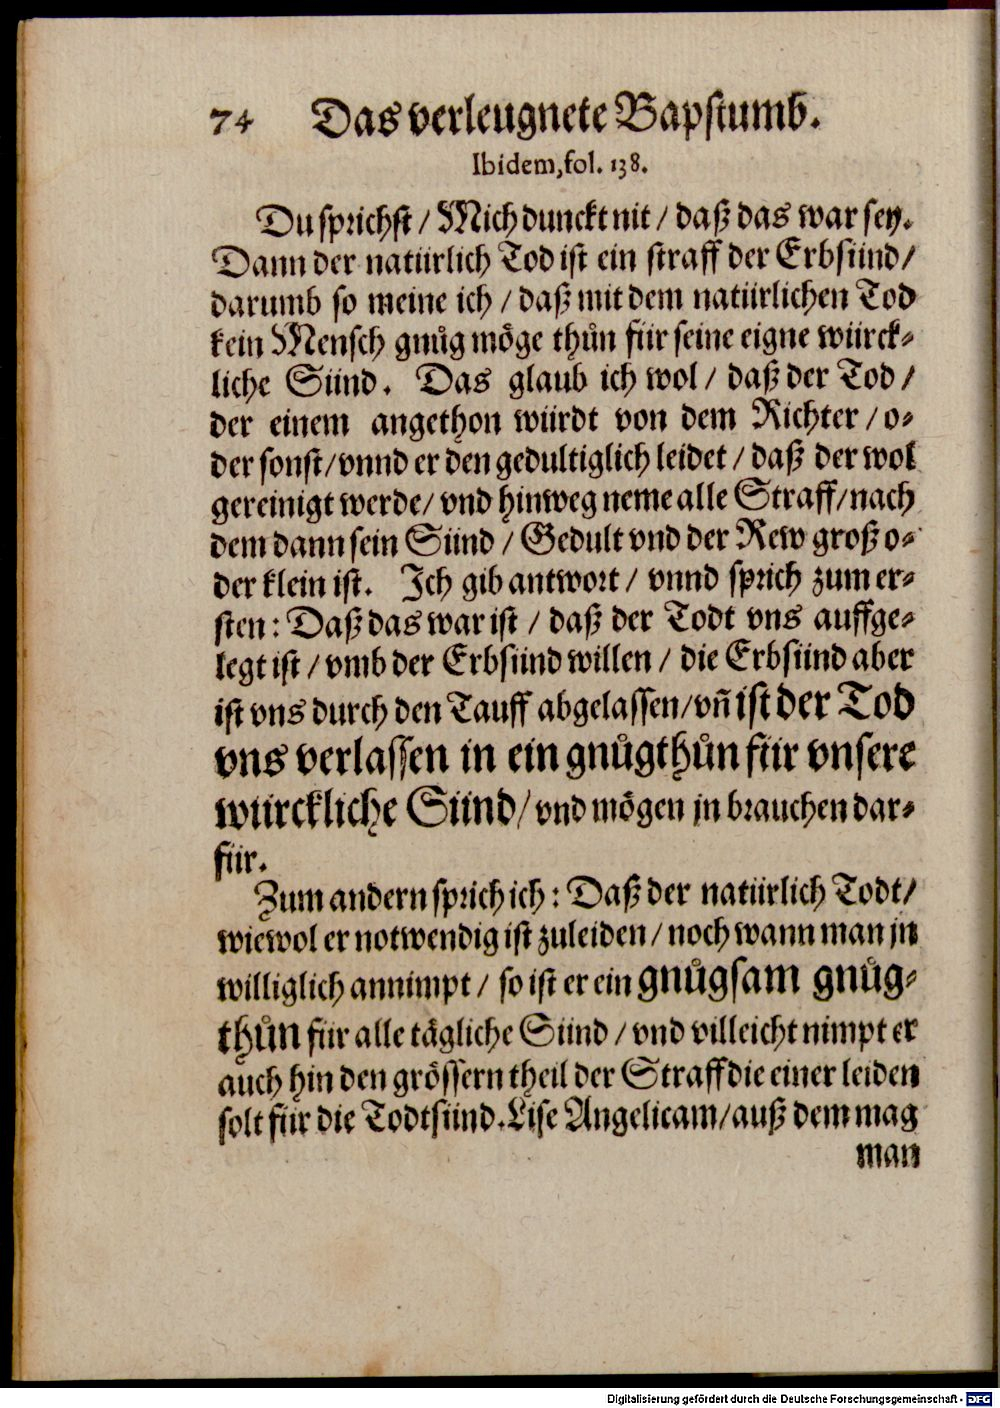 74 Das verleugnete Bapstumb.
Ibidem, fol. 138.
Du sprichst / Mich dunckt nit / daß das war sey.
Dann der natürlich Tod ist ein straff der Erbsünd /
darumb so meine ich / daß mit dem natürlichen Tod
kein Mensch gnůg möge thůn für seine eigne würck-
liche Sünd. Das glaub ich wol / daß der Tod /
der einem angethon würdt von dem Richter / o-
der sonst / vnnd er den gedultiglich leidet / daß der wol
gereinigt werde / vnd hinweg neme alle Straff / nach
dem dann sein Sünd / Gedult vnd der Rew groß o-
der klein ist. Ich gib antwort / vnnd sprich zum er-
sten: Daß das war ist / daß der Todt vns auffge-
legt ist / vmb der Erbsünd willen / die Erbsünd aber
ist vns durch den Tauff abgelassen / vn̄ ist der Tod
vns verlassen in ein gnůgthůn für vnsere
würckliche Sünd / vnd mögen jn brauchen dar-
für.
Zum andern sprich ich: Daß der natürlich Todt /
wiewol er notwendig ist zuleiden / noch wann man jn
williglich annimpt / so ist er ein gnůgsam gnůg-
thůn für alle tägliche Sünd / vnd villeicht nimpt er
auch hin den grössern theil der Straff die einer leiden
solt für die Todtsünd. Lise Angelicam / auß dem mag
man
Digitalisierung gefördert durch die Deutsche Forschungsgemeinschaft - DFG